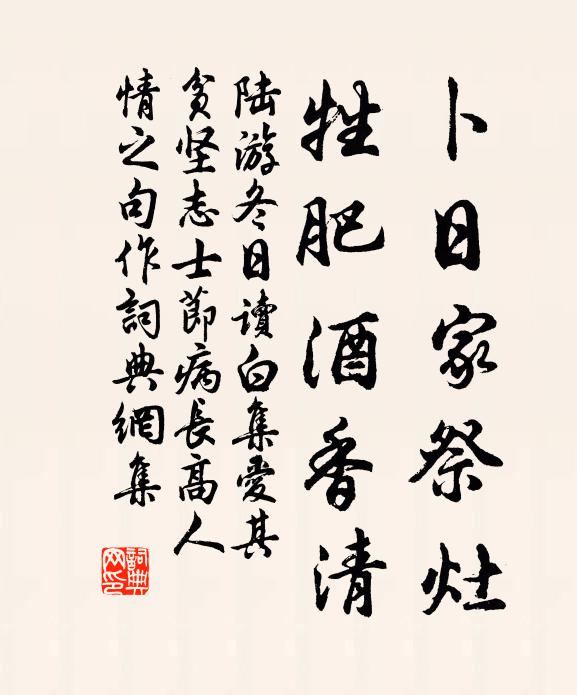 卜日家祭灶
牲肥酒香清
陆游冬日读白集爱其
贫坚志士节病长高人
情之句作詞典網集
詞典
网印